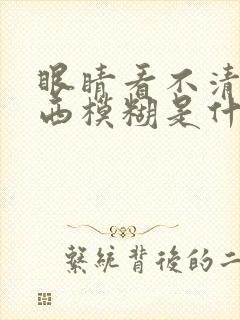 眼睛看不清
西模糊是什
繫統背後的二